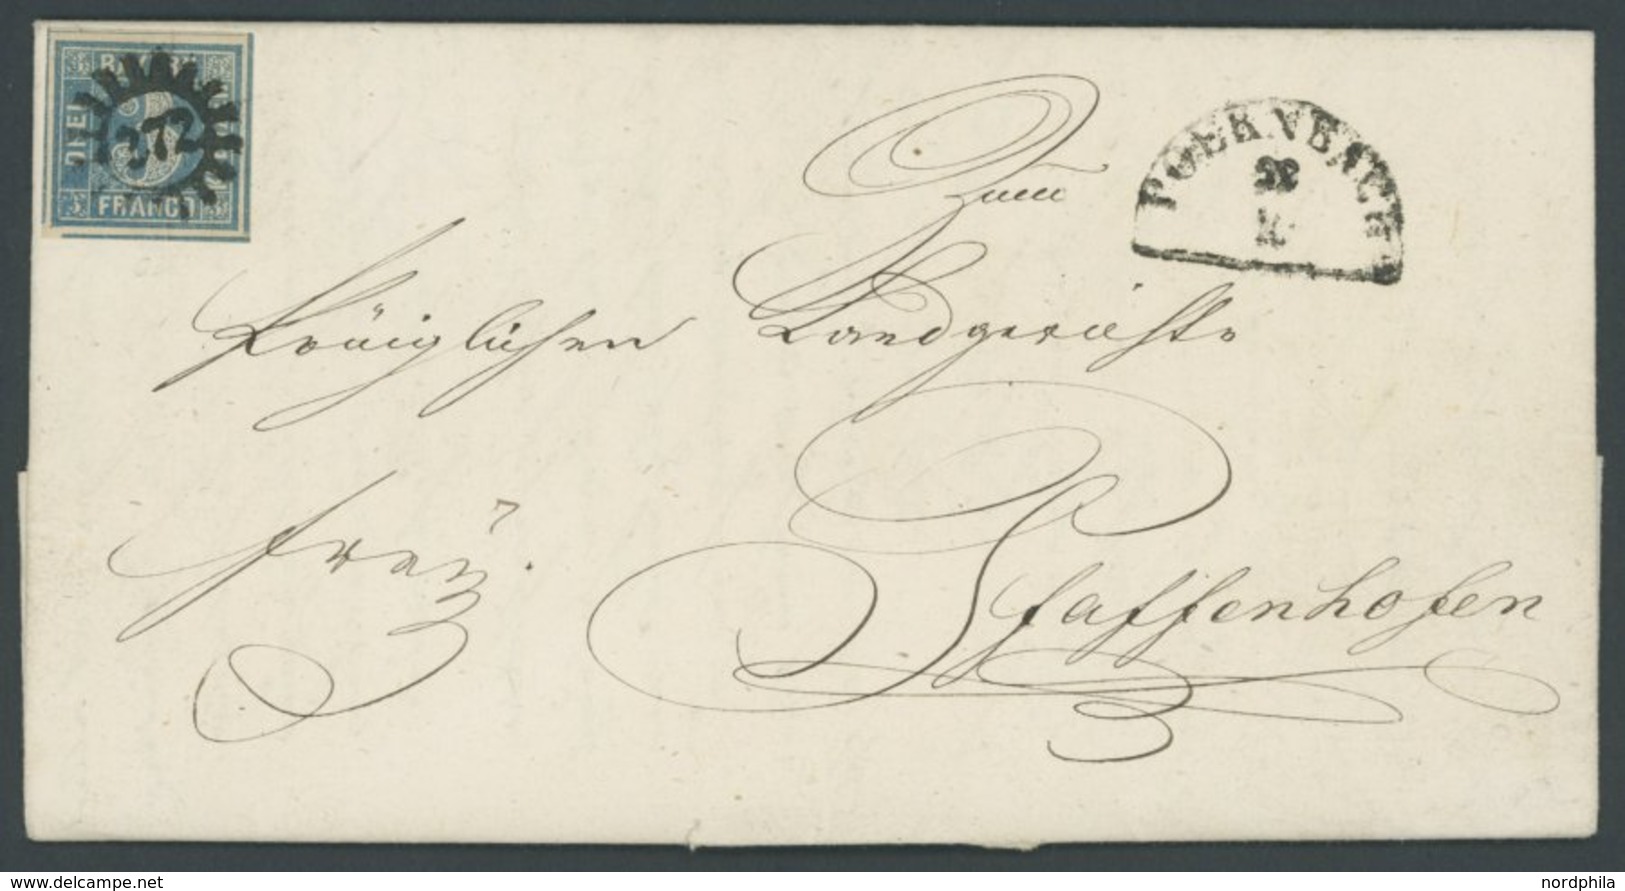 BAYERN
DREI
FRANCO
272
POERNBACH
22
Zum
Königlichen Landgerichte
frei.
Pfaffenhofen
www.delcampe.net
nordphila